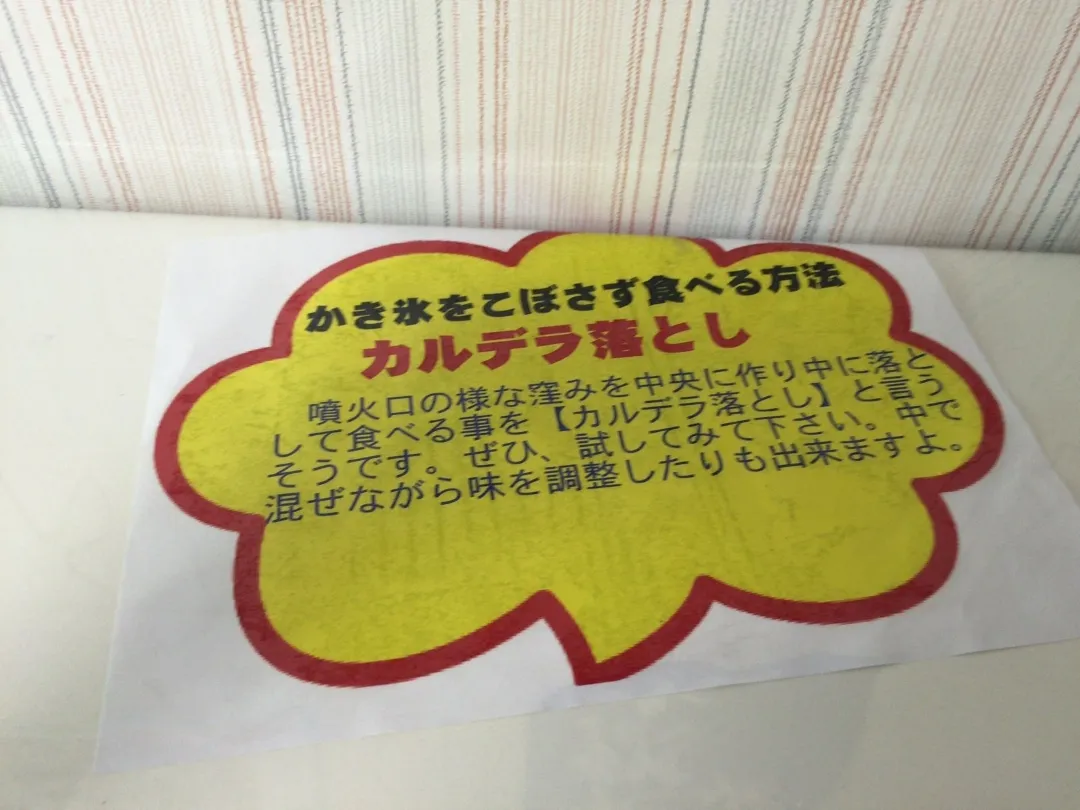 かき氷をこぼさず食べる方法
カルデラ落とし
噴火口の様な窪みを中央に作り中に落と
して食べる事を【カルデラ落とし】と言う
そうです。ぜひ、試してみて下さい。中で
混ぜながら味を調整したりも出来ますよ。